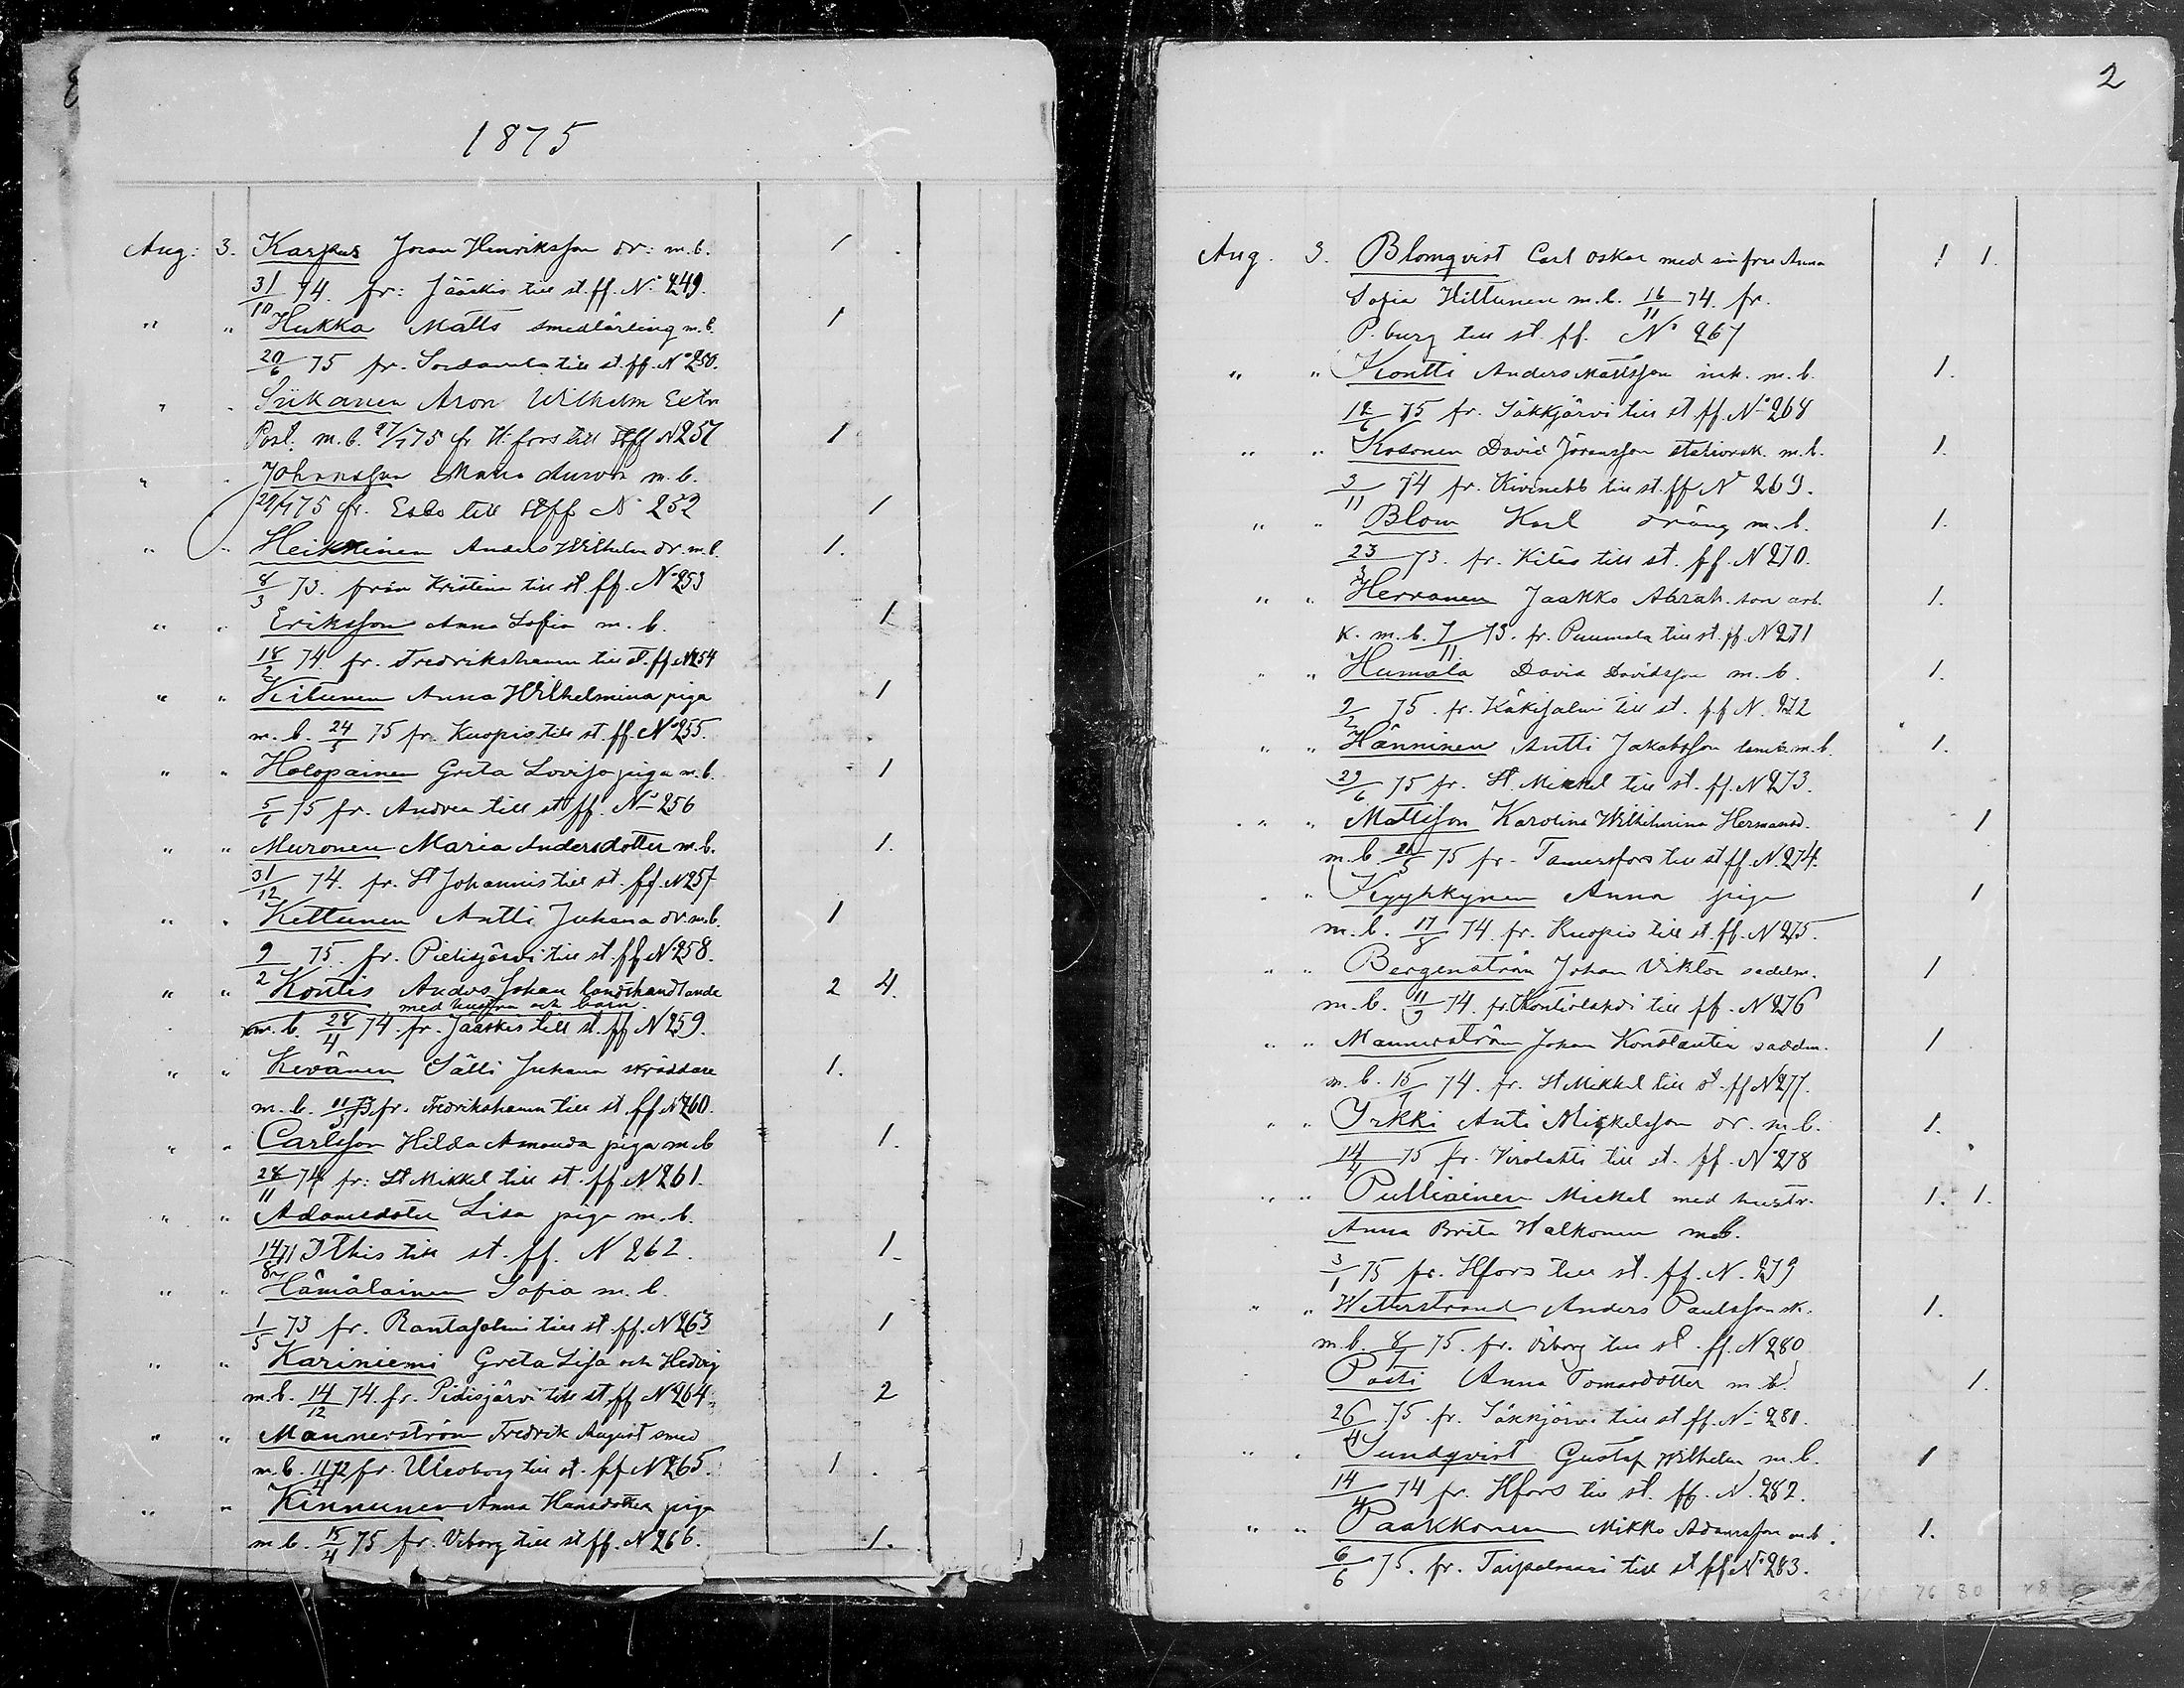 1875
Aug: 3. Karphus Joran Henriksson dr: m.b. 1
31/10 74. fr: Jääskis till st. ff. No 249.
" " Hukka Matts smedlärling m.b. 1
20/6 75 fr. Sordavala till st. ff. No 250.
" " Siikanen Aron Wilhelm Extr
Post. m.b. 27/7 75 fr H:fors till st ff N 251 1
" " Johansson Maria m.b.
29/7 75 fr. Esbo till st ff No 252 1
" " Heikkinen Anders Wilhelm dr. m.b. 1.
8/3 73. från Kristina till st. ff. No 253
" " Eriksson Anna Sofia m.b. 1
18/2 74 fr. Fredrikshamn till st. ff. N 254
" " Kitunen Anna Wilhelmina piga 1
m.b. 24/5 75 fr. Kuopio till st. ff. No 255.
" " Holopainen Greta Lovisa piga m.b. 1
5/6 75 fr. Andrea till st ff. No 256
" " Muronen Maria Andersdotter m.b. 1.
31/12 74. fr. St Johannis till st. ff. N 257
" " Kettunen Antti Juhana dr. m.b. 1
9/2 75. fr. Pielisjärvi till st. ff No 258.
" " Kontis Anders Johan landthandlande 2 4.
med hustru och barn
m.b. 28/4 74. fr. Jääskis till st. ff N 259.
" " Kevänen Sälli Juhana skräddare 1.
m.b. 11/5 73 fr. Fredrikshamn till st ff No 260.
" " Carlsson Hilda Amanda piga m.b 1.
28/11 74 fr: St Mikkel till st. ff N 261.
" " Adamsdotter Lisa piga m.b.
14/8 71 Ithis till st. ff. N 262. 1
" " Hämäläinen Sofia m.b.
1/5 73 fr. Rantasalmi till st. ff. N 263 1
" " Kariniemi Greta Lisa och Hedvig
m.b. 14/12 74. fr. Pidisjärvi till st. ff No 264. 2
" " Mannerström Fredrik August smed
m.b. 11/4 72 fr. Uleoborg till st. ff No 265. 1
" " Kinnunen Anna Hansdotter piga
m.b. 15/4 75 fr. Viborg till st ff. N 266. 1.
2
Aug. 3. Blomqvist Carl Oskar med sin fru Anna 1 1.
Sofia Hiltunen m.b. 16/11 74. fr.
P.burg till st. ff. No 267
" " Kontti Anders Mattsson inh. m.b. 1.
12/6 75 fr. Säkkjärvi till st ff. No 268
" " Kosonen David Jöransson stationsk. m.b. 1.
3/11 74 fr. Kivinebb till st. ff No 269.
" " Blom Karl dräng m.b. 1.
23/3 73. fr. Kites till st. ff. N 270.
" " Herranen Jaakko Abrah. son arb. 1.
k. m.b. 7/11 73. fr. Puumala till st. ff. N 271
" " Humala David Davidsson m.b. 1.
9/2 75. fr. Käkisalmi till st. ff N. 272
" " Hänninen Antti Jakobsson m.b. 1.
29/6 75 fr. St. Mickel till st. ff. N 273.
" " Mattsson Karolina Wilhelmina Hermansd. 1
m.b. 21/5 75 fr. Tamersfors till st ff. N. 274.
" " Kyyhkynen Anna piga 1
m.b. 17/8 74. fr. Kuopio till st. ff. N 275.
" " Bergenström Johan Viktor sadelm. 1
m.b. 11/9 74. fr. Kontiolahdi till ff. N 276
" " Mannerström Johan Konstantin saddm. 1
m.b. 15/7 74. fr. St Mikkel till st. ff N 277.
" " Yrkki Anti Mickelsson dr. m.b. 1.
14/4 75 fr. Virolahti till st. ff. No 278
" " Pulliainen Mickel med hustr. 1. 1.
Anna Brita Halkonen m.b.
3/1 75 fr. Hfors till st. ff. N. 279
" " Wetterstrand Anders Paulsson sk. 1.
m.b. 8/7 75. fr. Viborg till st. ff. N 280
Posti Anna Tomasdotter m.b. 1.
26/4 75. fr. Säkkjärvi till st ff. No 281.
" " Sundqvist Gustaf Wilhelm m.b. 1
14/4 74 fr. Hfors till st. ff. N. 282.
" " Paakkonen Mikko Adamsson m.b. 1.
6/6 75. fr. Taipalsaari till st ff No 283.
76 80